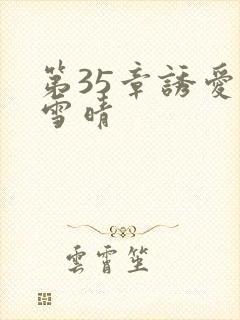 第35章誘愛
雪晴
雲霄笙